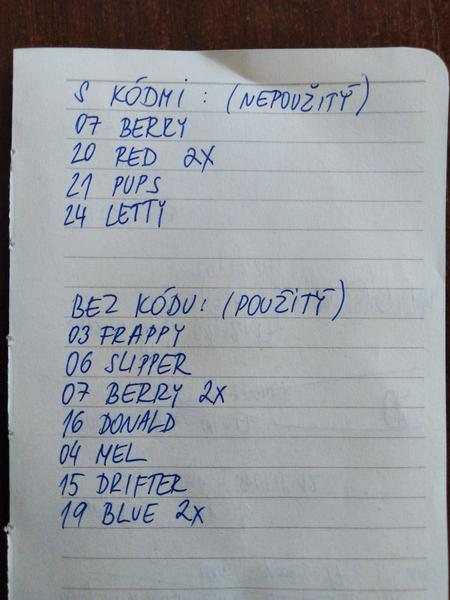 S KÓDMI : (NEPOUŽITÝ)
07 BERRY
20 RED 2X
21 PUPS
24 LETTY
BEZ KÓDU: (POUŽITÝ)
03 FRAPPY
06 SLIPPER
07 BERRY 2X
16 DONALD
04 MEL
15 DRIFTER
19 BLUE 2X